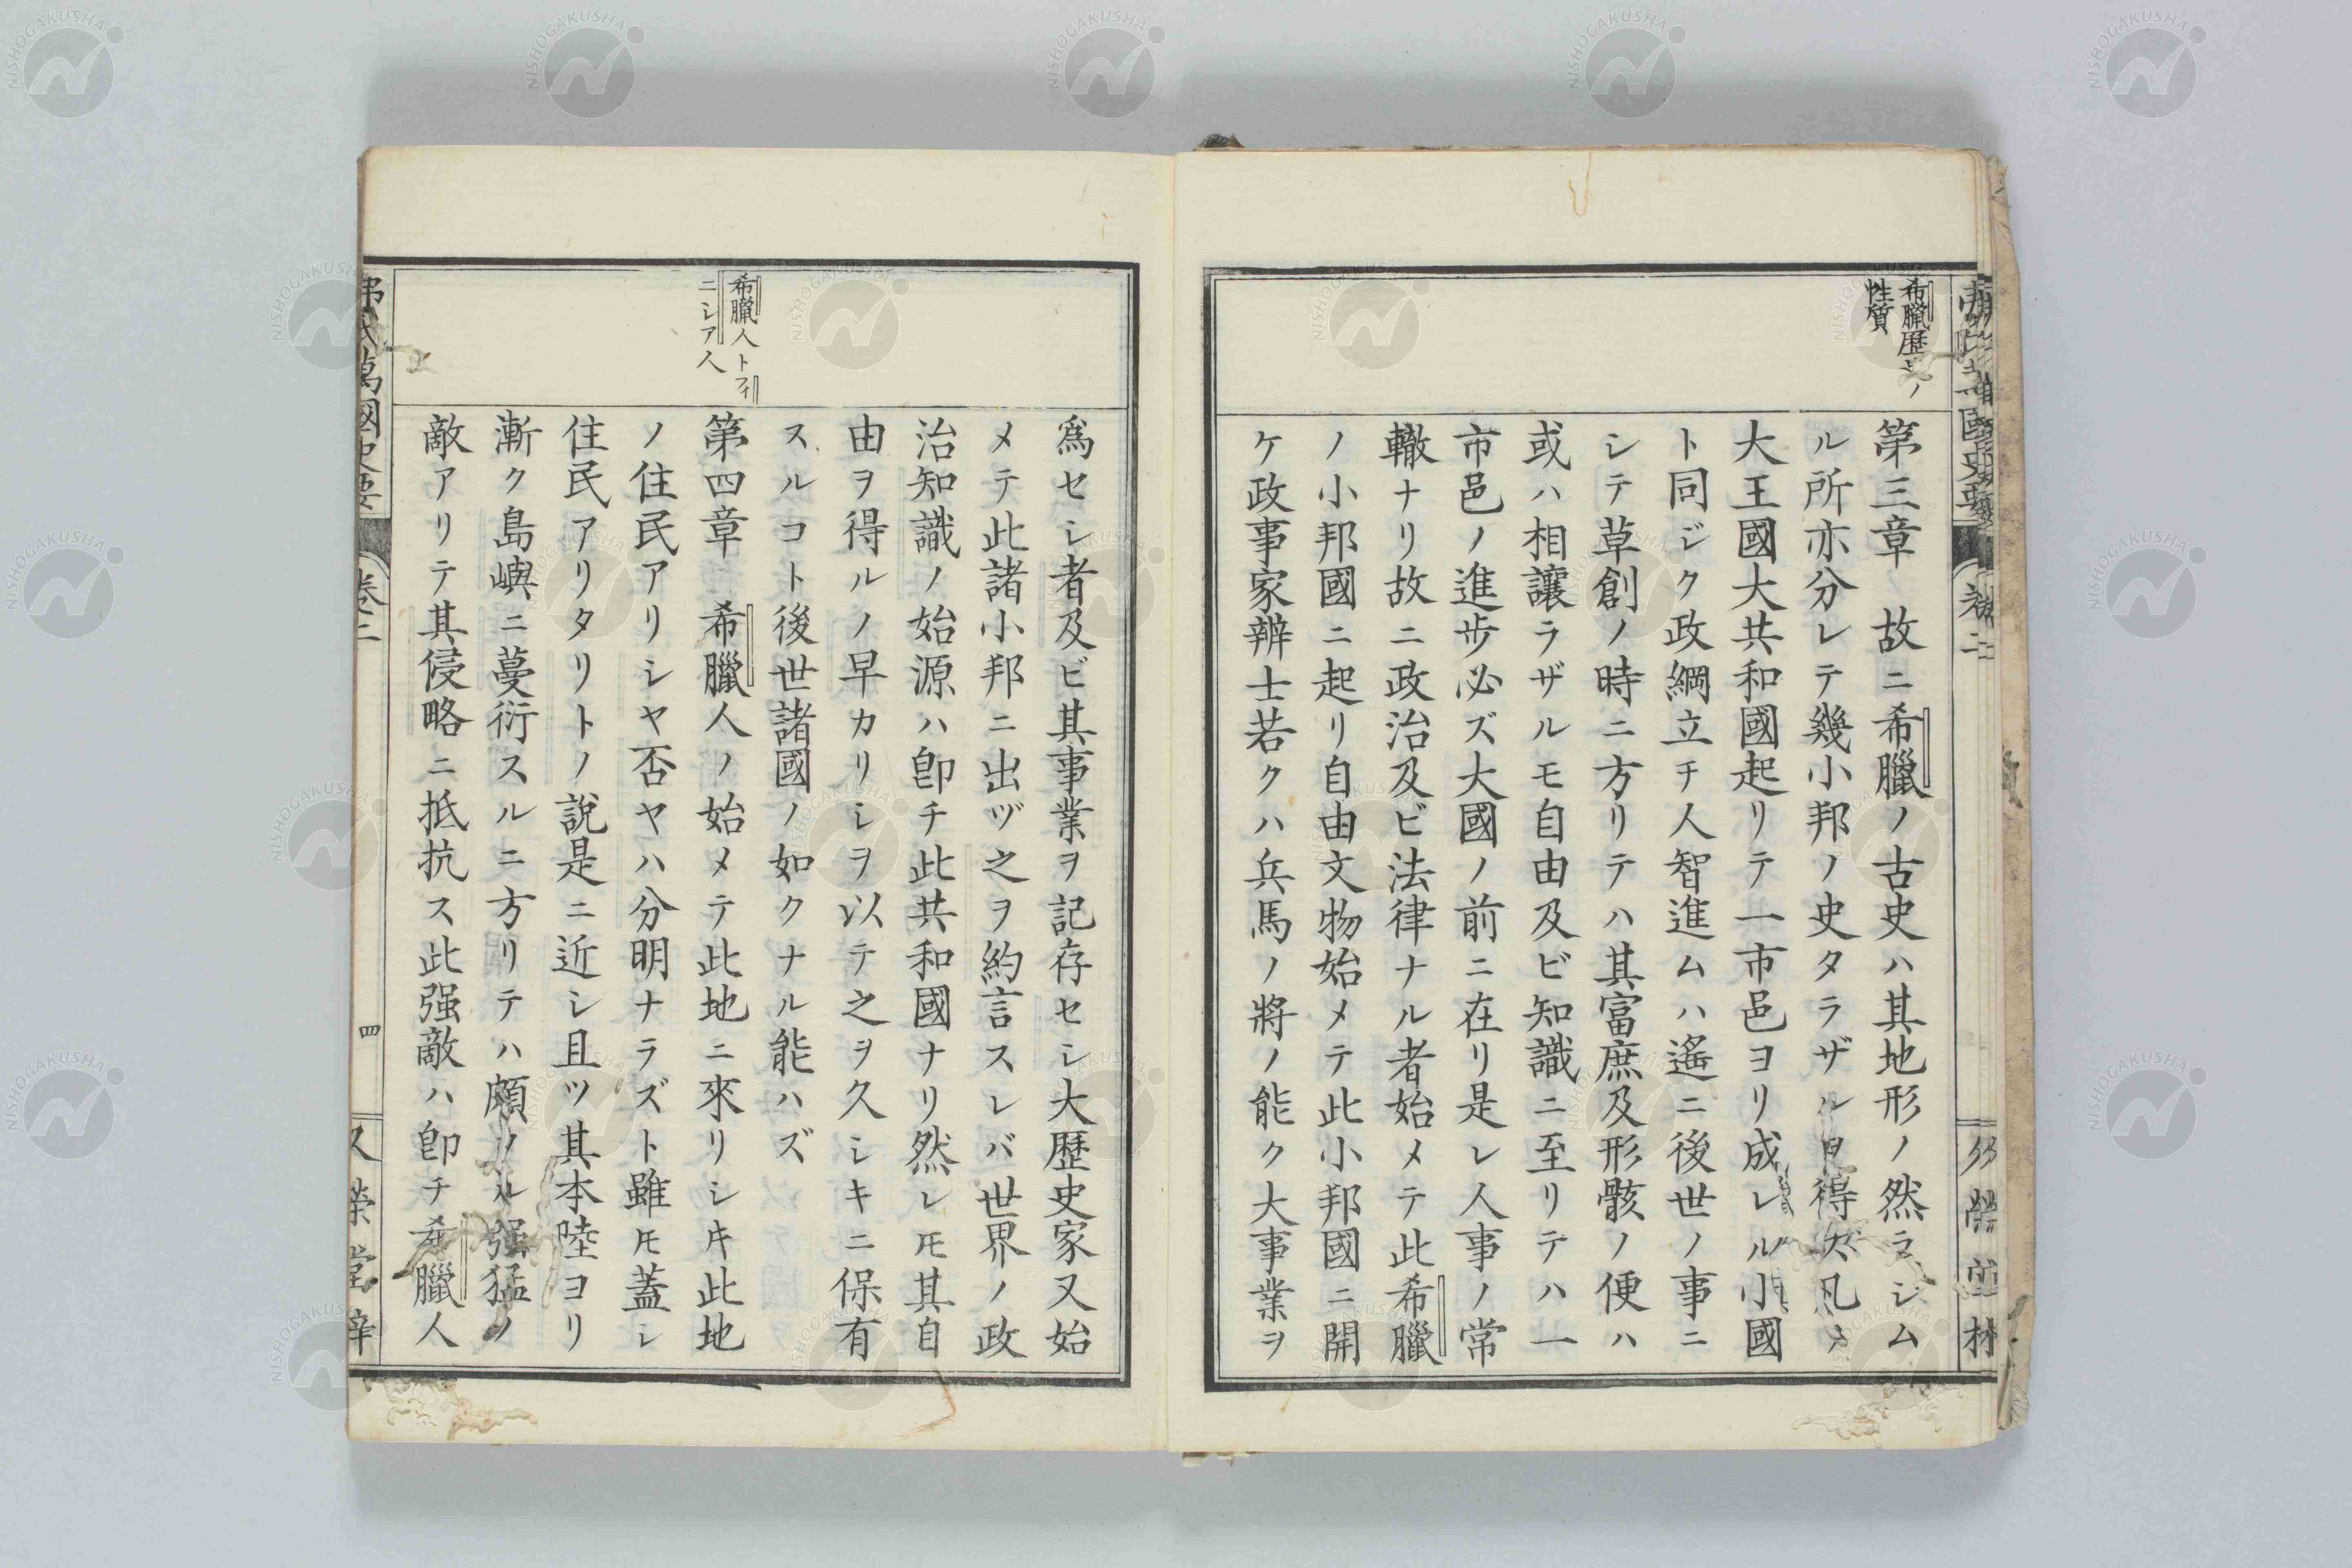 希臘歴史ノ
性質
第三章　故ニ希臘ノ古史ハ其地形ノ然ラシム
ル所亦分レテ幾小邦ノ史タラザルヿ得ズ凡ソ
大王國大共和國起リテ一市邑ヨリ成レル小國
ト同ジク政綱立チ人智進ムハ遙ニ後世ノ事ニ
シテ草創ノ時ニ方リテハ其富庶及形骸ノ便ハ
或ハ相讓ラザルモ自由及ビ知識ニ至リテハ一
市邑ノ進歩必ズ大國ノ前ニ在リ是レ人事ノ常
轍ナリ故ニ政治及ビ法律ナル者始メテ此希臘
ノ小邦國ニ起リ自由文物始メテ此小邦國ニ開
ケ政事家辨士若クハ兵馬ノ將ノ能ク大事業ヲ
希臘人トフィ
ニシア人
爲セシ者及ビ其事業ヲ記存セシ大歴史家又始
メテ此諸小邦ニ出ヅ之ヲ約言スレバ世界ノ政
治知識ノ始源ハ卽チ此共和國ナリ然レ𪜈其自
由ヲ得ルノ早カリシヲ以テ之ヲ久シキニ保有
スルコト後世諸國ノ如クナル能ハズ
第四章　希臘人ノ始メテ此地ニ來リシキ此地
ノ住民アリシヤ否ヤハ分明ナラズト雖𪜈蓋シ
住民アリタリトノ說是ニ近シ且ツ其本陸ヨリ
漸ク島嶼ニ蔓衍スルニ方リテハ頗ル强猛ノ
敵アリテ其侵略ニ抵抗ス此强敵ハ卽チ希臘人
萬國史要
卷二
四
榮堂梓